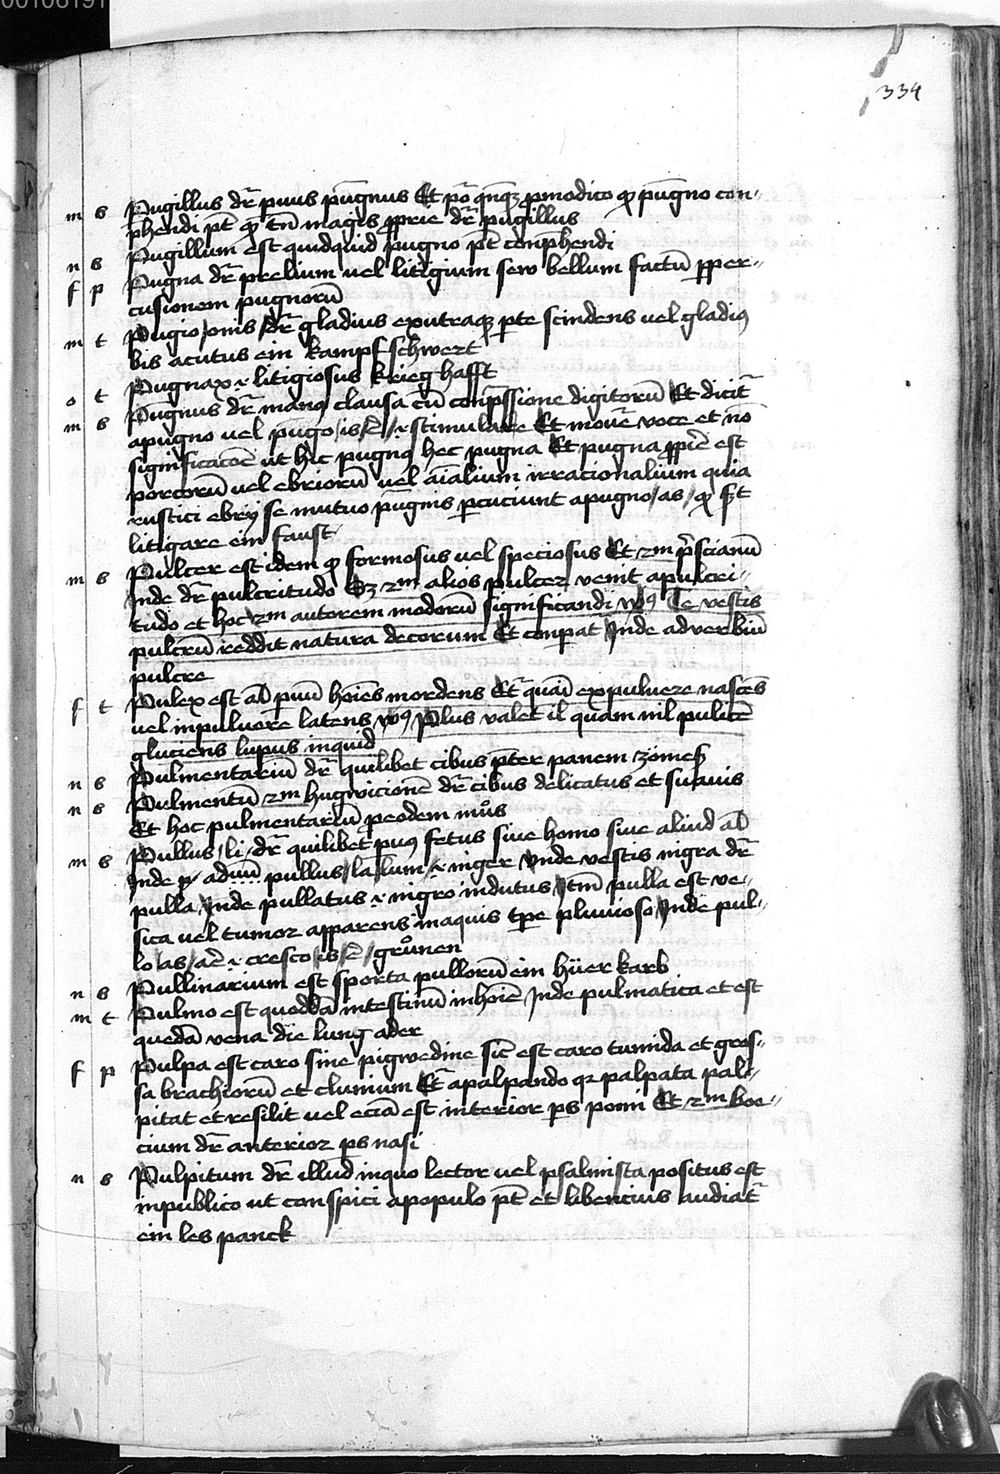 00106191
334
m s Pugillus dr̄ puus pugnus Et pō qn̄qꝫ pmodico qꝫ pugno con-
phendi pt̄ qꝫ tn̄ magis pprie dr̄ pugillus
n s Pugillum est quidquid pugno pt̄ conphendi
f p Pugna dr̄ prelium uel litigium sew bellum factū pper-
cusionem pugnorū
m t Pugio onis dr̄ gladius exutraqꝫ pte scindens uel gladiꝰ
bis acutus ein kampf schwert
o t Pugnax .i. litigiosus krieg hafft
m s Pugnus dr̄ manꝰ clausa cū conpssione digitorū Et dicit̄
apugno uel pugo is .i. stimulare Et mouet̄ voce et nō
significacōe ut hic pugnꝰ hec pugna Et pugna pprie est
porcorū uel ebriorū uel aīalium irracionalium quia
rustici ebrij se mutuo pugnis pcuciunt apugno as qꝫ st̄
litigare ein faust
m s Pulcer est idem qꝫ formosus uel speciosus Et 2m priscianū
Inde dr̄ pulcritudo Sꝫ 2m alios pulcer venit apulcri-
tudo et hoc 2m autorem modorū significandi vꝰ Te vestis
pulcrū reddit natura decorum Et conpat̄ Inde adverbiū
pulcre
f t Pulex est aīal puū hoīes mordens Et̄ quasi expuluere nascēs
uel inpuluere latens vꝰ Plus valet il quam nil pulicē
gluciens lupus inquid
n s Pulmentariū dr̄ quilibet cibus pter panem zomes
n s Pulmentū 2m hugwicionē dr̄ cibus delicatus et suauis
Et hoc pulmentariū peodem mͦs
m s Pullus li dr̄ quilibet puꝰ fetus siue homo siue aliud aīal
Inde pullus la lum .i. niger vnde vestis nigra dr̄
pulla Inde pullatus .i. nigro indutus Itm̄ pulla est ve-
sica uel tumor apparens inaquis tpe pluuioso Inde pul-
lo as are .i. cresco is gruͦnen
n s Pullinarium est sporta pullorū ein hüer karb
m t Pulmo est quoddā intestinū inhoīe Inde pulmatica et est
quedā vena die lung ader
f p Pulpa est caro sine pigwedine sic̄ est caro tumida et gros-
sa brachiorū et clunium Et̄ apalpando qꝛ palpata pal-
pitat et resilit uel eciā est interior ps pomi Et 2m boe-
cium dr̄ anterior ps nasi
n s Pulpitum dr̄ illud inquo lector uel psalmista positus est
inpublico ut conspici apopulo pt̄ et libencius audiat̄
ein les panck